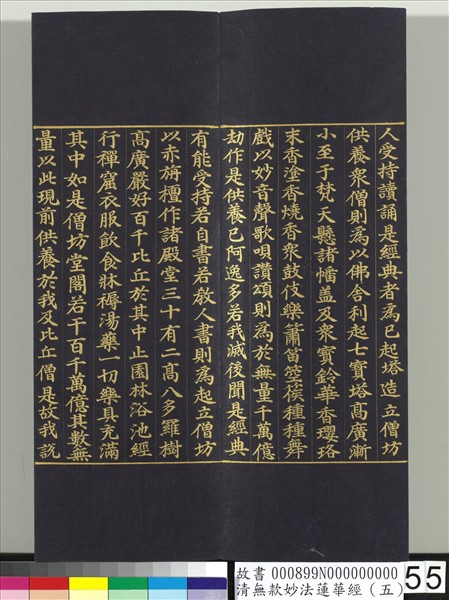 人受持讀誦是經典者為已起塔造立僧坊
供養衆僧則為以佛舍利起七寶塔髙廣漸
小至于梵天懸諸幡盖及衆寶鈴華香瓔珞
末香塗香燒香衆鼓伎樂簫笛箜篌種種舞
戲以妙音聲歌唄讚頌則為於無量千萬億
劫作是供養已阿逸多若我滅後聞是經典
有能受持若自書若敎人書則為起立僧坊
以赤栴檀作諸殿堂三十有二髙八多羅樹
髙廣嚴好百千比丘於其中止園林浴池經
行禪窟衣服飲食牀褥湯藥一切樂具充滿
其中如是僧坊堂閣若干百千萬億其數無
量以此現前供養於我及比丘僧是故我說
故書 000899N000000000
清無款妙法蓮華經（五）
55